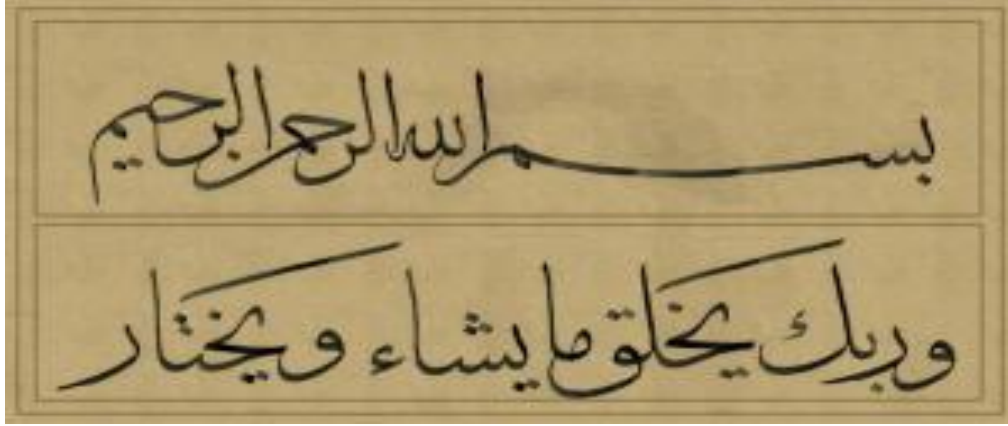 بسم الله الرحمن الرحيم
وربك يخلق ما يشاء ويختار